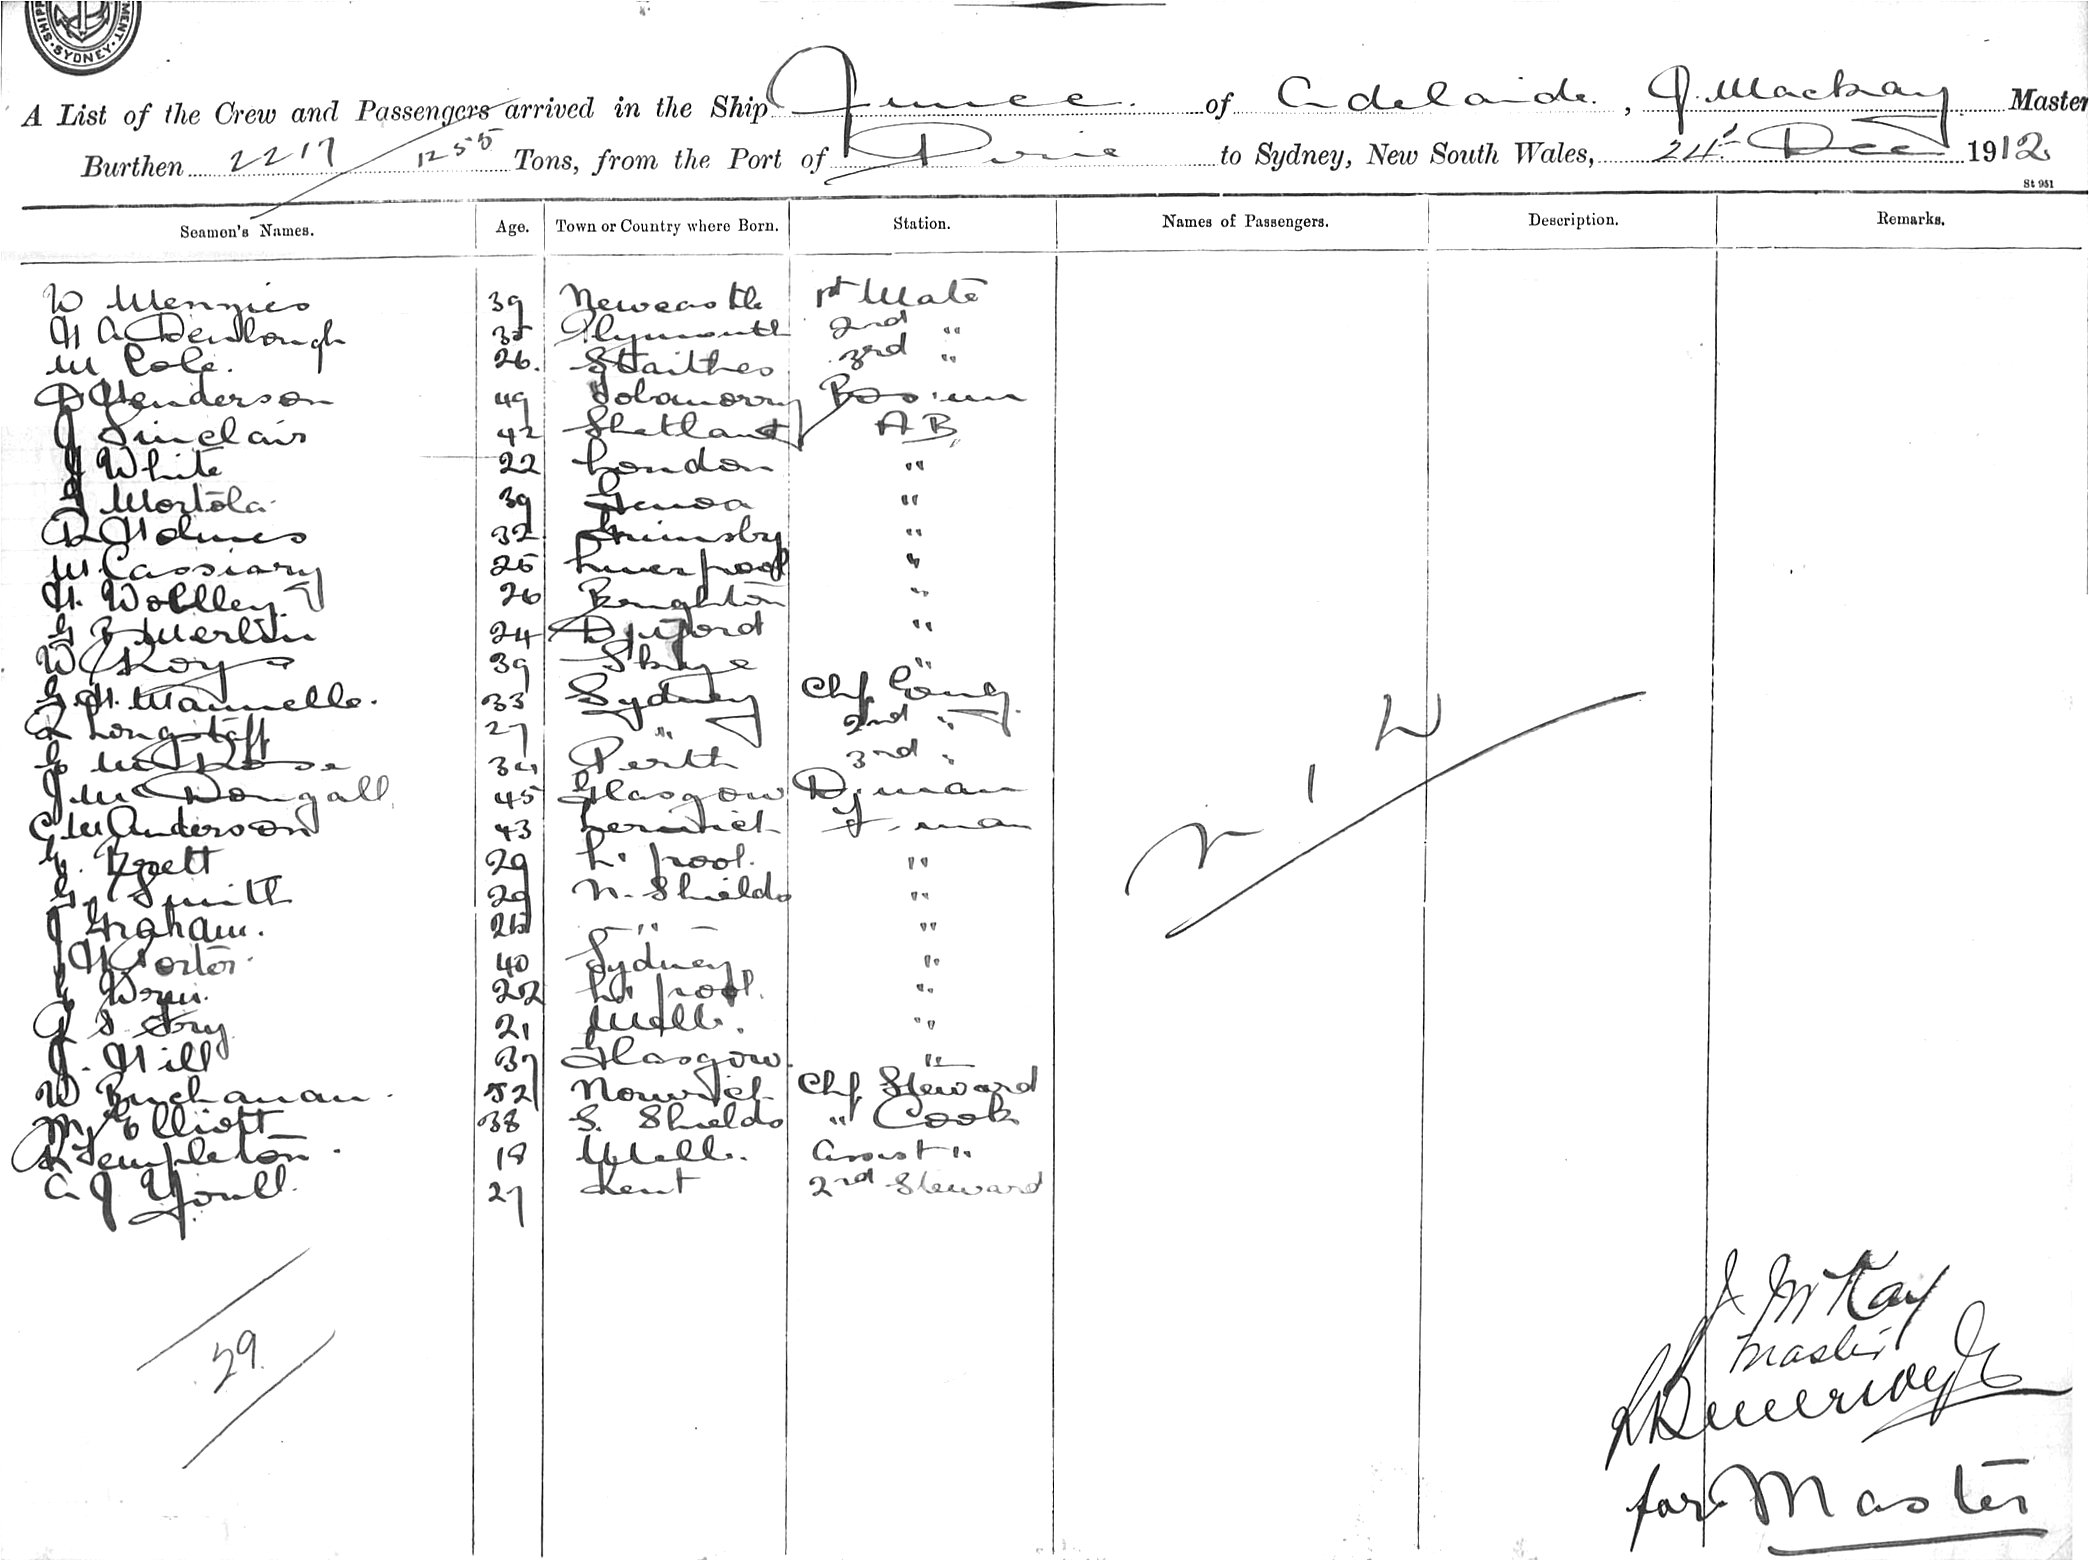 SYDNEY
A List of the Crew and Passengers arrived in the Ship Junee. of Adelaide. , J. Mackay Master
Burthen 2217 1255 Tons, from the Port of Pirie to Sydney, New South Wales, 24 Dec 1912
St 951
Seamen's Names. Age. Town or Country where Born. Station. Names of Passengers. Description. Remarks.
W Menzies 39 Newcastle 1st Mate
H A 35 Plymouth 2nd "
M Cole. 26. Staithes 3rd "
D Henderson 49 Tobamorry Bos'un
J Sinclair 42 Shetland AB
J White 22 London "
J Mortola 39 Genoa "
R Holmes 32 Grimsby "
M. Cassiary 25 Liverpool "
H. Wollley 26 Brighton "
Merlin 24 "
W Roy 39 Skye "
G. H. Mannelle. 33 Sydney Chf Eng
R Longstaff 27 " 2nd "
G McRose 34 Perth 3rd "
J. McDongall 45 Glasgow D. man
C M Anderson 43 F. man
G. Brett 29 L. pool. "
G. Smith 29 N. Shields "
J Graham. "
J H Porter 40 Sydney "
22 L. pool. "
21 Melb. "
J. Hill 37 Glasgow "
W Buchanan 52 Norwich Chf Steward
Elliott 38 S. Shields " Cook
R Templeton 18 Melb. Assist "
A J Youll 27 Kent 2nd Steward
N I L
29
J McKay
Master
for Master